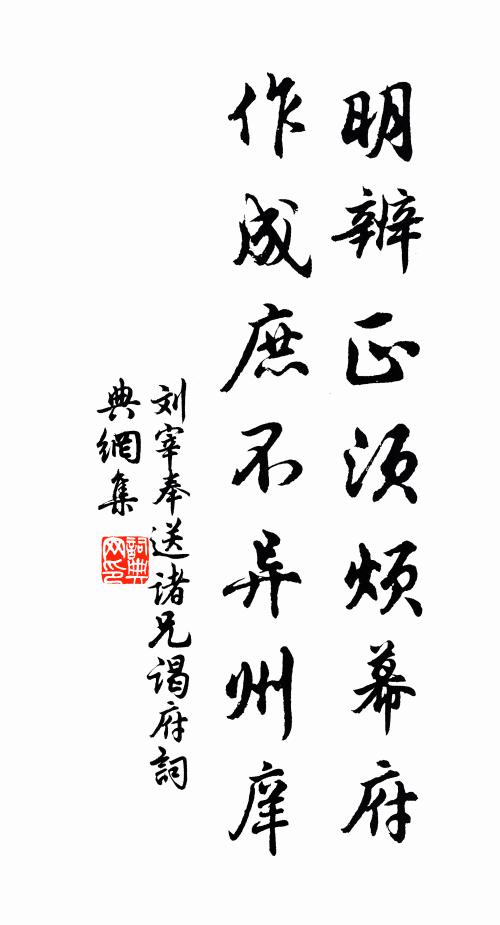 明辨正须烦幕府
作成庶不异州庠
刘宰奉送诸兄谒府詞
典網集
詞典
网印